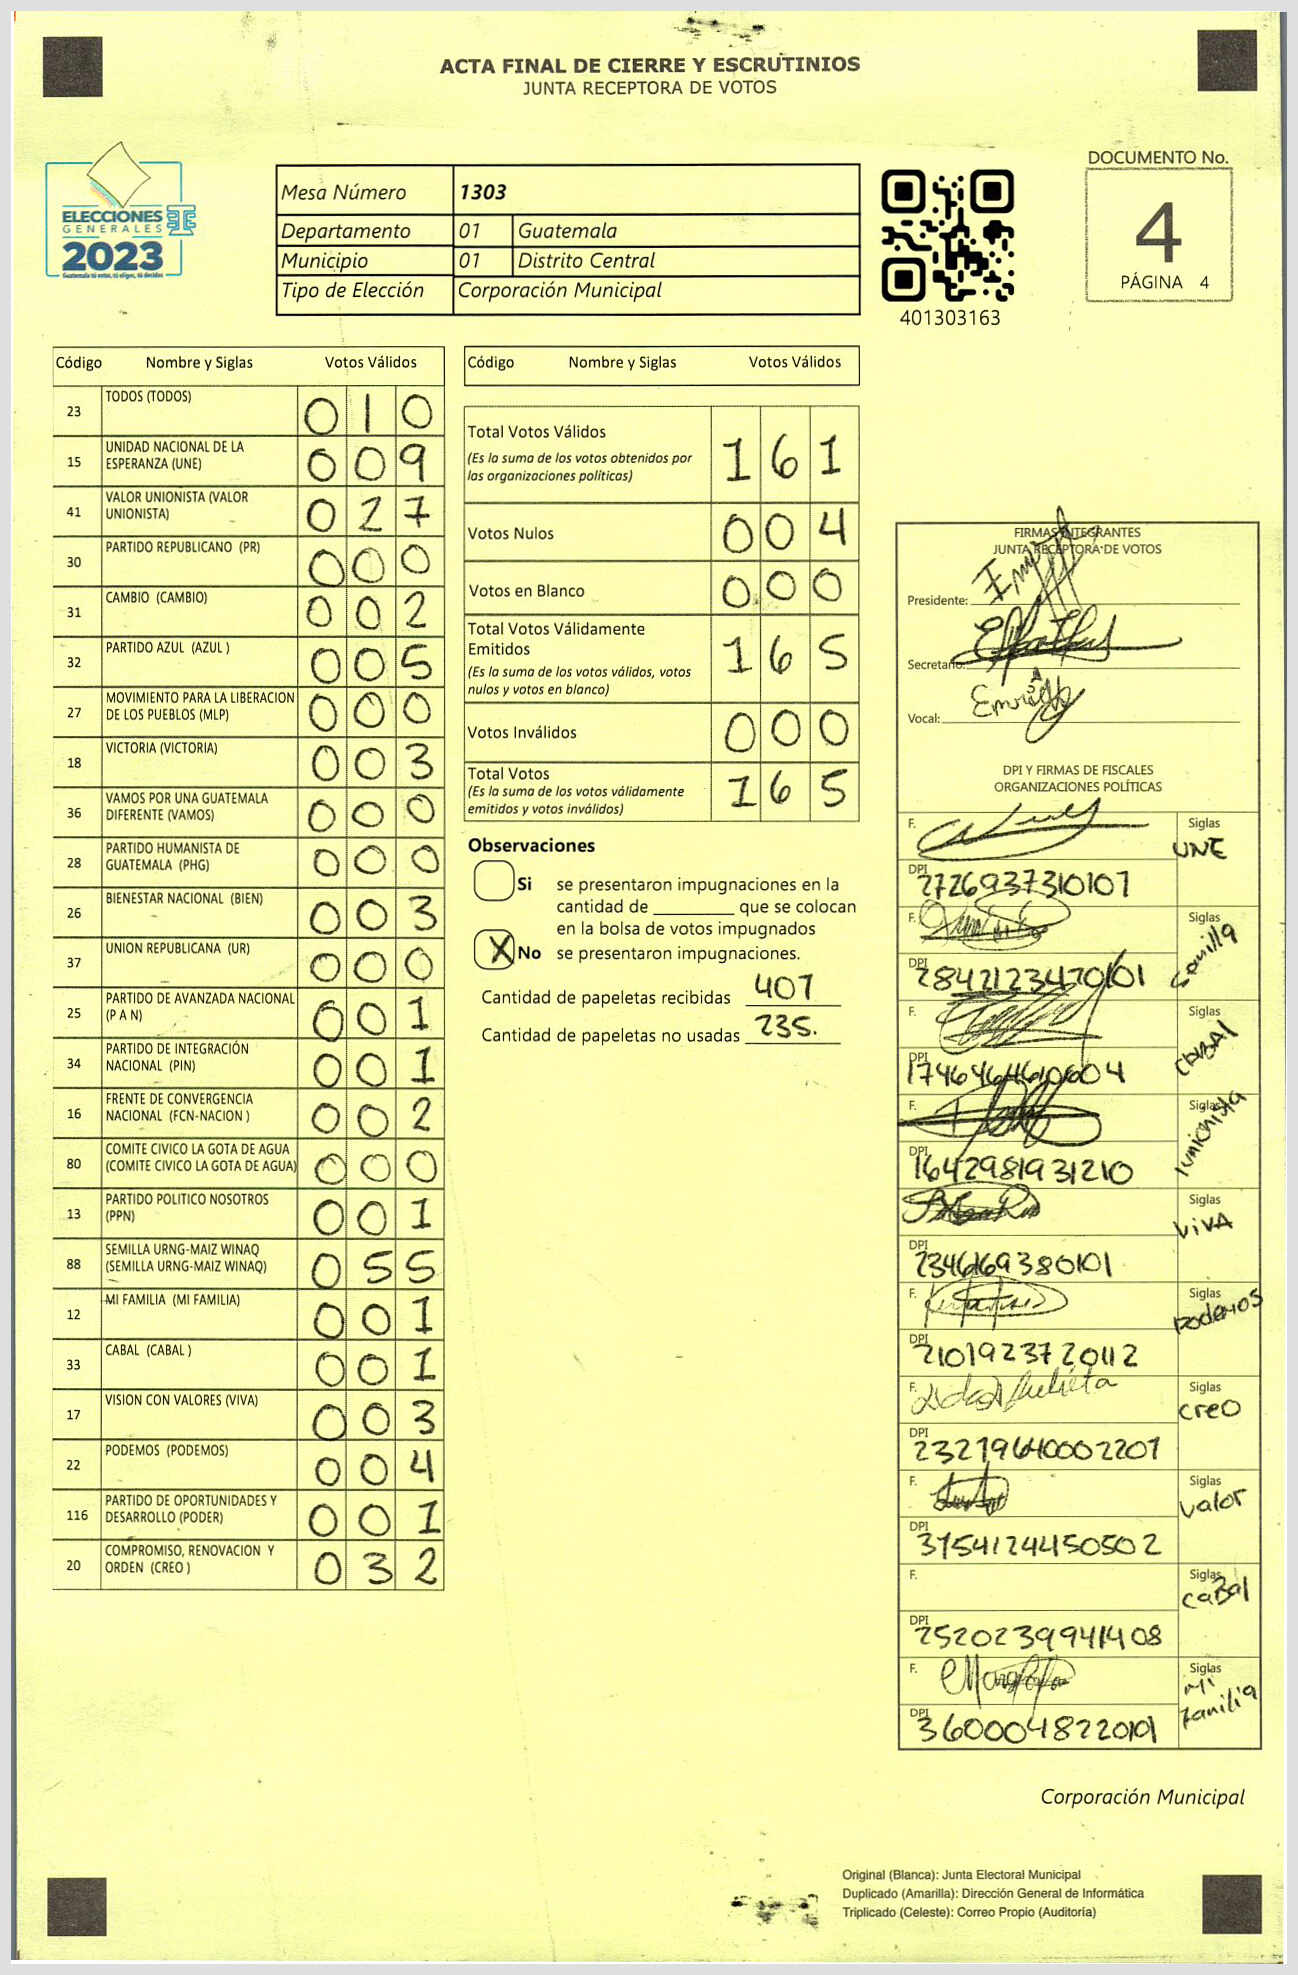 ACTA FINAL DE CIERRE Y ESCRUTINIOS
JUNTA RECEPTORA DE VOTOS
ELECCIONES
GENERALES
2023
Mesa Número 1303
Departamento 01 Guatemala
Municipio 01 Distrito Central
Tipo de Elección Corporación Municipal
401303163
DOCUMENTO No.
4
PÁGINA 4
Código Nombre y Siglas Votos Válidos
23 TODOS (TODOS) 0 1 0
15 UNIDAD NACIONAL DE LA
ESPERANZA (UNE) 0 0 9
41 VALOR UNIONISTA (VALOR
UNIONISTA) 0 2 7
30 PARTIDO REPUBLICANO (PR) 0 0 0
31 CAMBIO (CAMBIO) 0 0 2
32 PARTIDO AZUL (AZUL ) 0 0 5
27 MOVIMIENTO PARA LA LIBERACION
DE LOS PUEBLOS (MLP) 0 0 0
18 VICTORIA (VICTORIA) 0 0 3
36 VAMOS POR UNA GUATEMALA
DIFERENTE (VAMOS) 0 0 0
28 PARTIDO HUMANISTA DE
GUATEMALA (PHG) 0 0 0
26 BIENESTAR NACIONAL (BIEN) 0 0 3
37 UNION REPUBLICANA (UR) 0 0 0
25 PARTIDO DE AVANZADA NACIONAL
(P A N) 0 0 1
34 PARTIDO DE INTEGRACIÓN
NACIONAL (PIN) 0 0 1
16 FRENTE DE CONVERGENCIA
NACIONAL (FCN-NACION ) 0 0 2
80 COMITE CIVICO LA GOTA DE AGUA
(COMITE CIVICO LA GOTA DE AGUA) 0 0 0
13 PARTIDO POLITICO NOSOTROS
(PPN) 0 0 1
88 SEMILLA URNG-MAIZ WINAQ
(SEMILLA URNG-MAIZ WINAQ) 0 5 5
12 MI FAMILIA (MI FAMILIA) 0 0 1
33 CABAL (CABAL ) 0 0 1
17 VISION CON VALORES (VIVA) 0 0 3
22 PODEMOS (PODEMOS) 0 0 4
116 PARTIDO DE OPORTUNIDADES Y
DESARROLLO (PODER) 0 0 1
20 COMPROMISO, RENOVACION Y
ORDEN (CREO ) 0 3 2
Código Nombre y Siglas Votos Válidos
Total Votos Válidos 1 6 1
(Es la suma de los votos obtenidos por
las organizaciones políticas)
Votos Nulos 0 0 4
Votos en Blanco 0 0 0
Total Votos Válidamente
Emitidos 1 6 5
(Es la suma de los votos válidos, votos
nulos y votos en blanco)
Votos Inválidos 0 0 0
Total Votos 1 6 5
(Es la suma de los votos válidamente
emitidos y votos inválidos)
Observaciones
Si se presentaron impugnaciones en la
cantidad de ________ que se colocan
en la bolsa de votos impugnados
X No se presentaron impugnaciones.
Cantidad de papeletas recibidas 407
Cantidad de papeletas no usadas 235.
FIRMAS INTEGRANTES
JUNTA RECEPTORA DE VOTOS
Presidente:
Secretario:
Vocal:
DPI Y FIRMAS DE FISCALES
ORGANIZACIONES POLÍTICAS
F. Siglas
UNE
DPI 2726937310107
F. Siglas
DPI 2842123470101
F. Siglas
CABAL
DPI
F. Siglas
unionista
DPI 1642981931210
F. Siglas
VIVA
DPI 2346169380101
F. Siglas
Podemos
DPI 2101923720112
F. Siglas
creo
DPI 23219640002207
F. Siglas
valor
DPI 3754124450502
F. Siglas
caBal
DPI 2520239941408
F. Siglas
Mi
familia
DPI 3600048220101
Corporación Municipal
Original (Blanca): Junta Electoral Municipal
Duplicado (Amarilla): Dirección General de Informática
Triplicado (Celeste): Correo Propio (Auditoría)